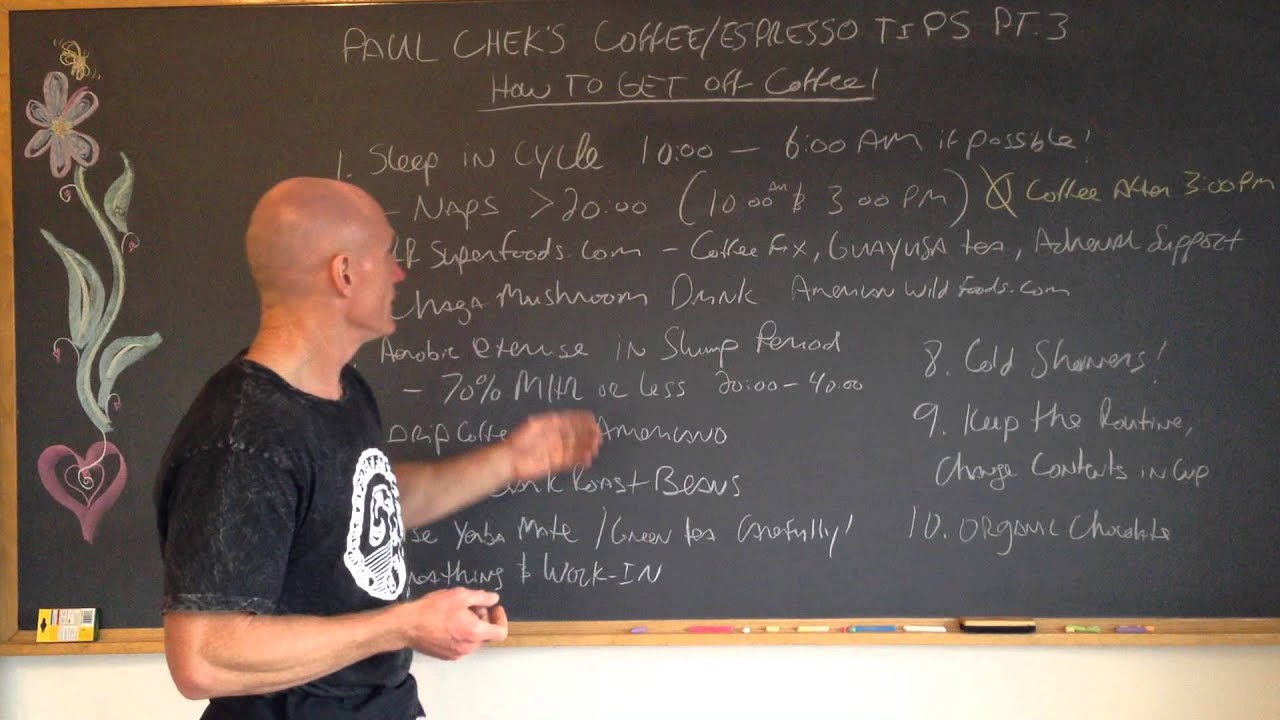 PAUL CHEK'S COFFEE/ESPRESSO TIPS PT.3
HOW TO GET OFF COFFEE!
1. Sleep in Cycle 10:00 – 6:00 AM if possible!
- NAPS >20:00 (10:00 AM & 3:00 PM) X Coffee After 3:00 PM
Superfoods.com – Coffee Fix, GUAYUSA tea, Adrenal Support
Chaga Mushroom Drink American Wild Foods.com
Aerobic exercise in Slump Period
- 70% MHR or less 20:00 – 40:00
DRIP Coffe Americano
Roast Beans
Yerba Mate / Green tea Carefully!
& WORK-IN
8. Cold Showers!
9. Keep the Routine,
Change Contents in Cup
10. ORGANIC Chocolate